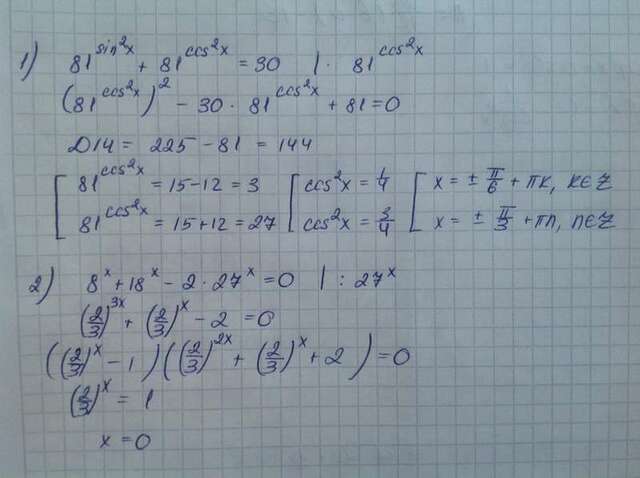 1) 81^{sin²x} + 81^{cos²x} = 30 | · 81^{cos²x}
(81^{cos²x})² - 30 · 81^{cos²x} + 81 = 0
D/4 = 225 - 81 = 144
[ 81^{cos²x} = 15 - 12 = 3 [ cos²x = 1/4 [ x = ± π/6 + πk, k∈Z
81^{cos²x} = 15 + 12 = 27 cos²x = 3/4 x = ± π/3 + πn, n∈Z
2) 8^x + 18^x - 2 · 27^x = 0 | : 27^x
(2/3)^{3x} + (2/3)^x - 2 = 0
((2/3)^x - 1)((2/3)^{2x} + (2/3)^x + 2) = 0
(2/3)^x = 1
x = 0